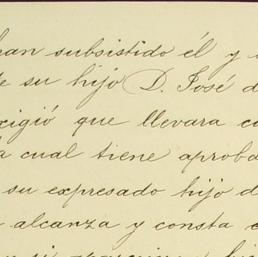 han subsistido él y
su hijo D. José
exigió que llevara
cual tiene aproba
su expresado hijo d
alcanza y consta